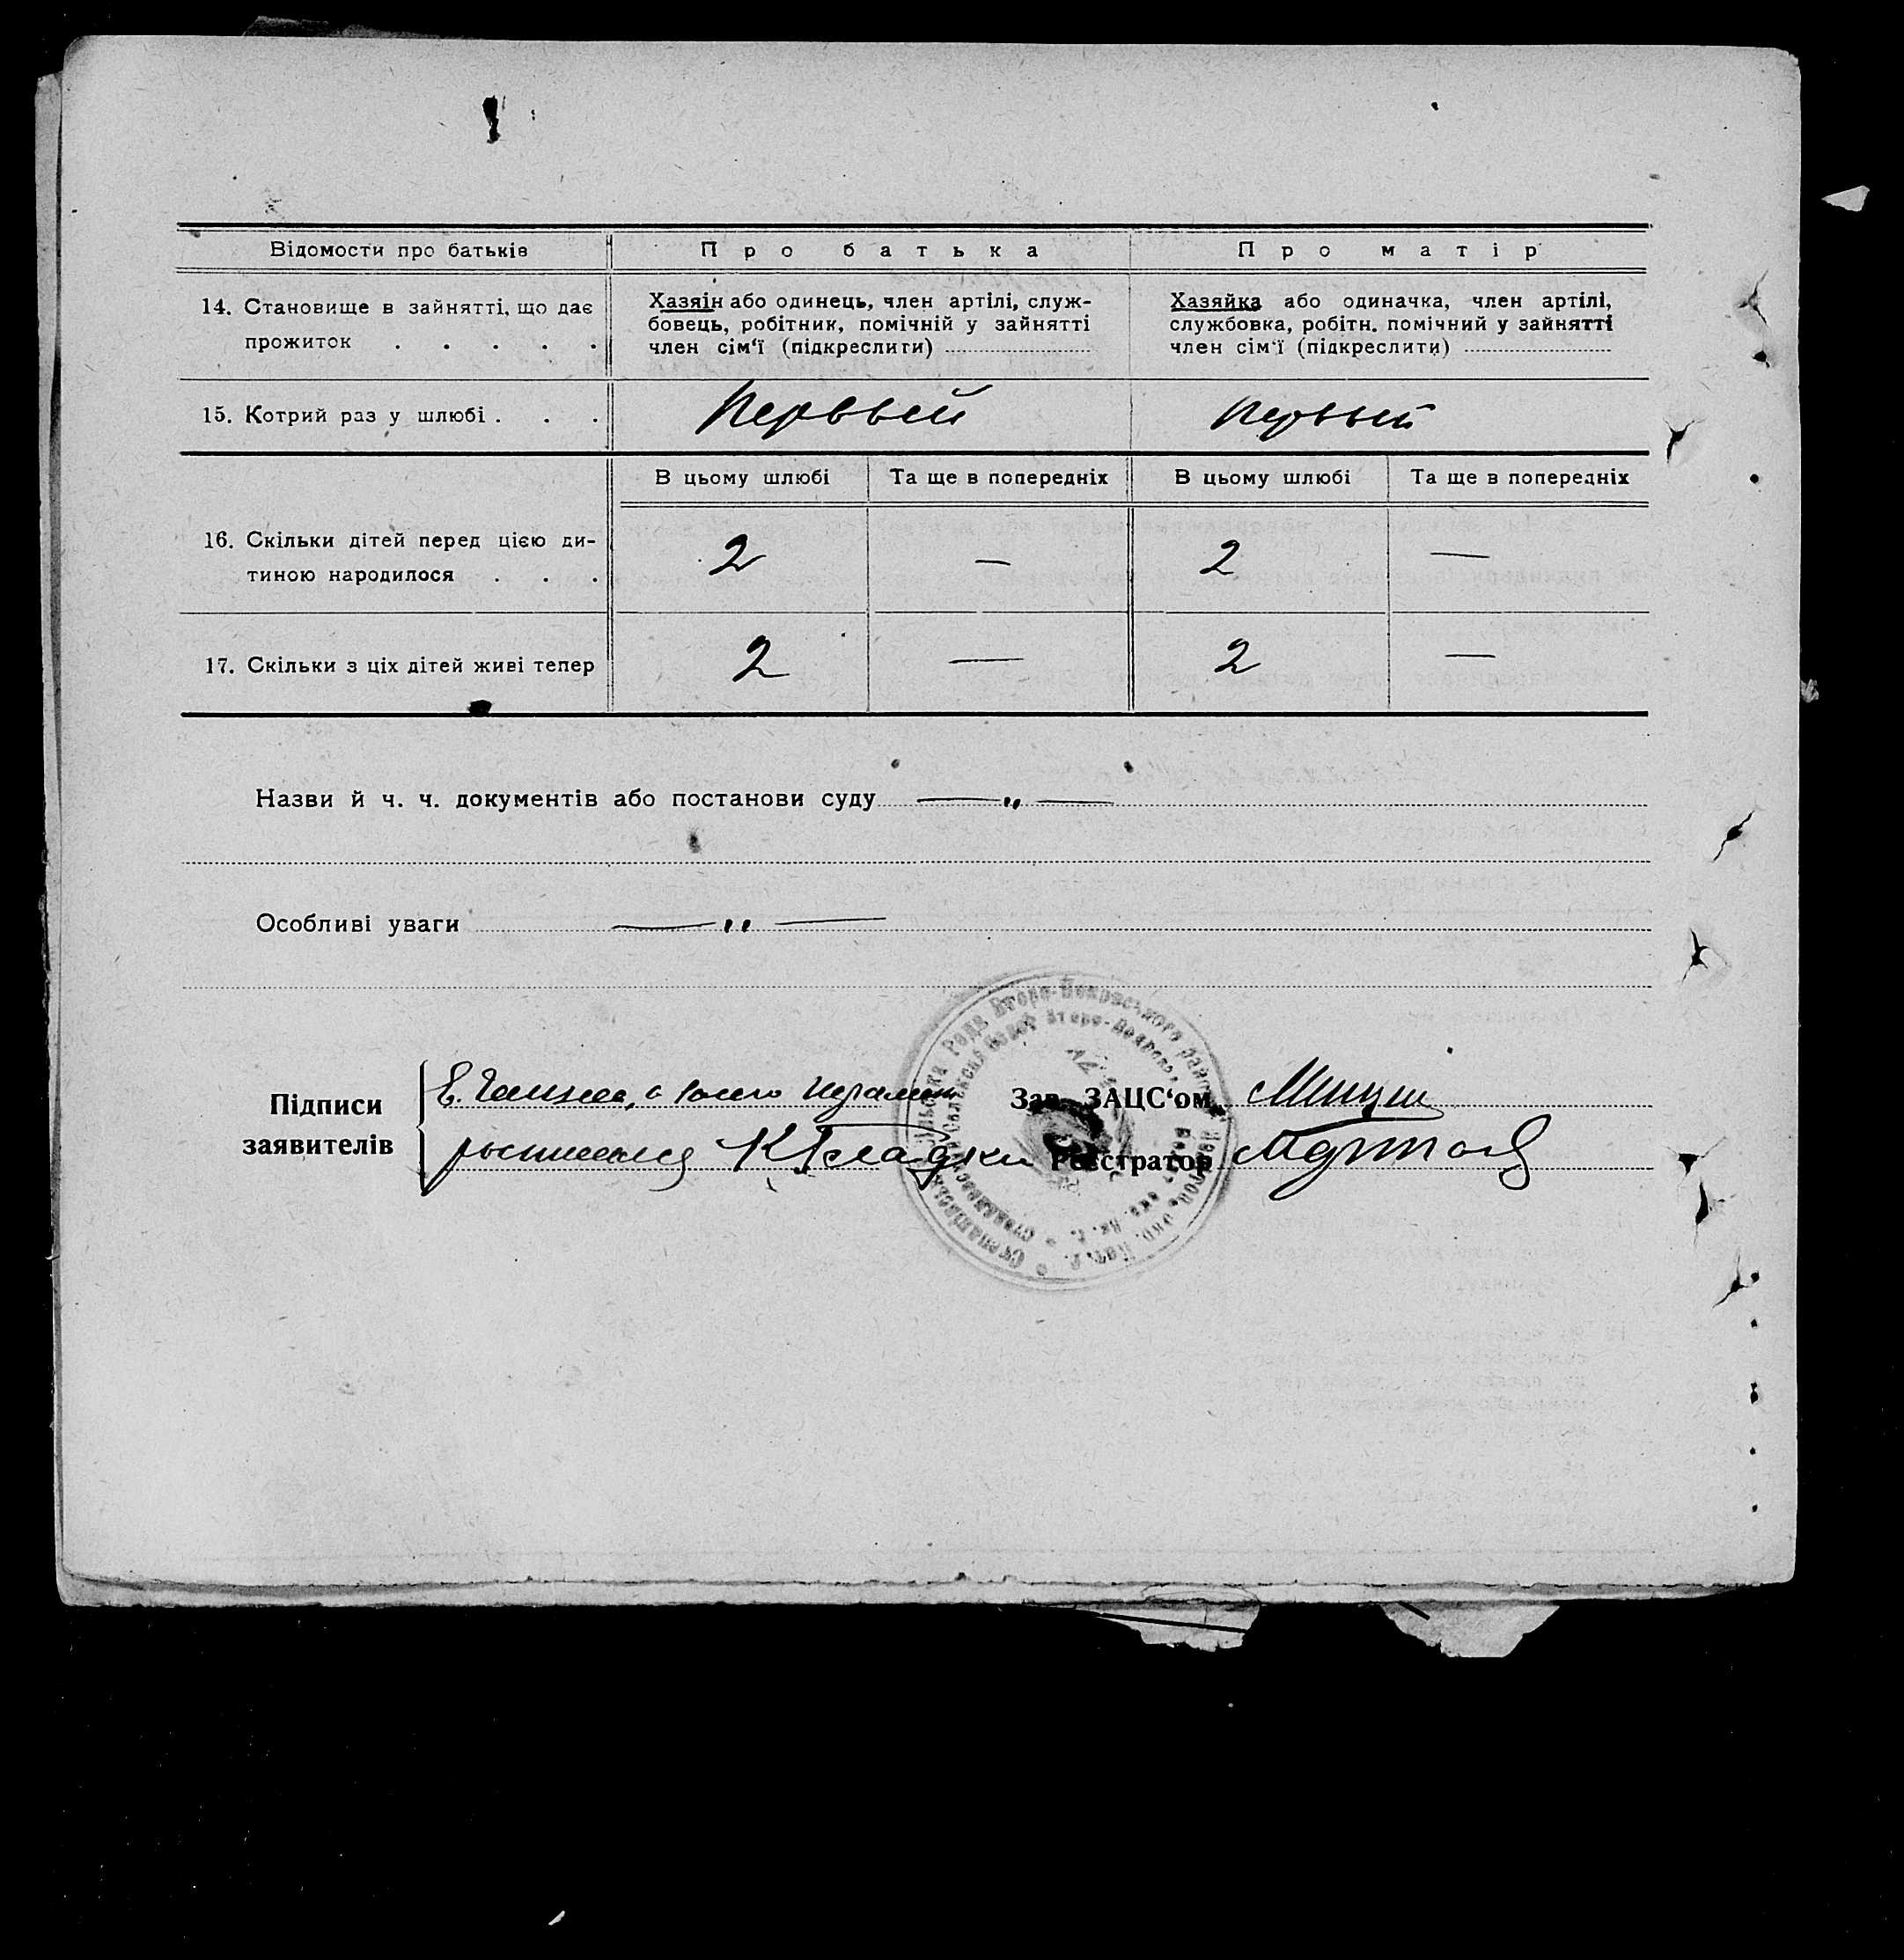 Відомости про батьків
Про батька
Про матір
14. Становище в зайнятті, що дає
прожиток . . . . .
Хазяін або одинець, член артілі, служ-
бовець, робітник, помічній у зайнятті
член сім'ї (підкреслити)
Хазяйка або одиначка, член артілі,
службовка, робітн. помічний у зайнятті
член сім'ї (підкреслити)
15. Котрий раз у шлюбі . . .
Первый
Первый
В цьому шлюбі
Та ще в попередніх
В цьому шлюбі
Та ще в попередніх
16. Скільки дітей перед цією ди-
тиною народилося . . .
2 — 2 —
17. Скільки з ціх дітей живі тепер
2 — 2 —
Назви й ч. ч. документів або постанови суду — „ —
Особливі уваги — „ —
Підписи
заявителів
Зав. ЗАЦС'ом
Реєстратор